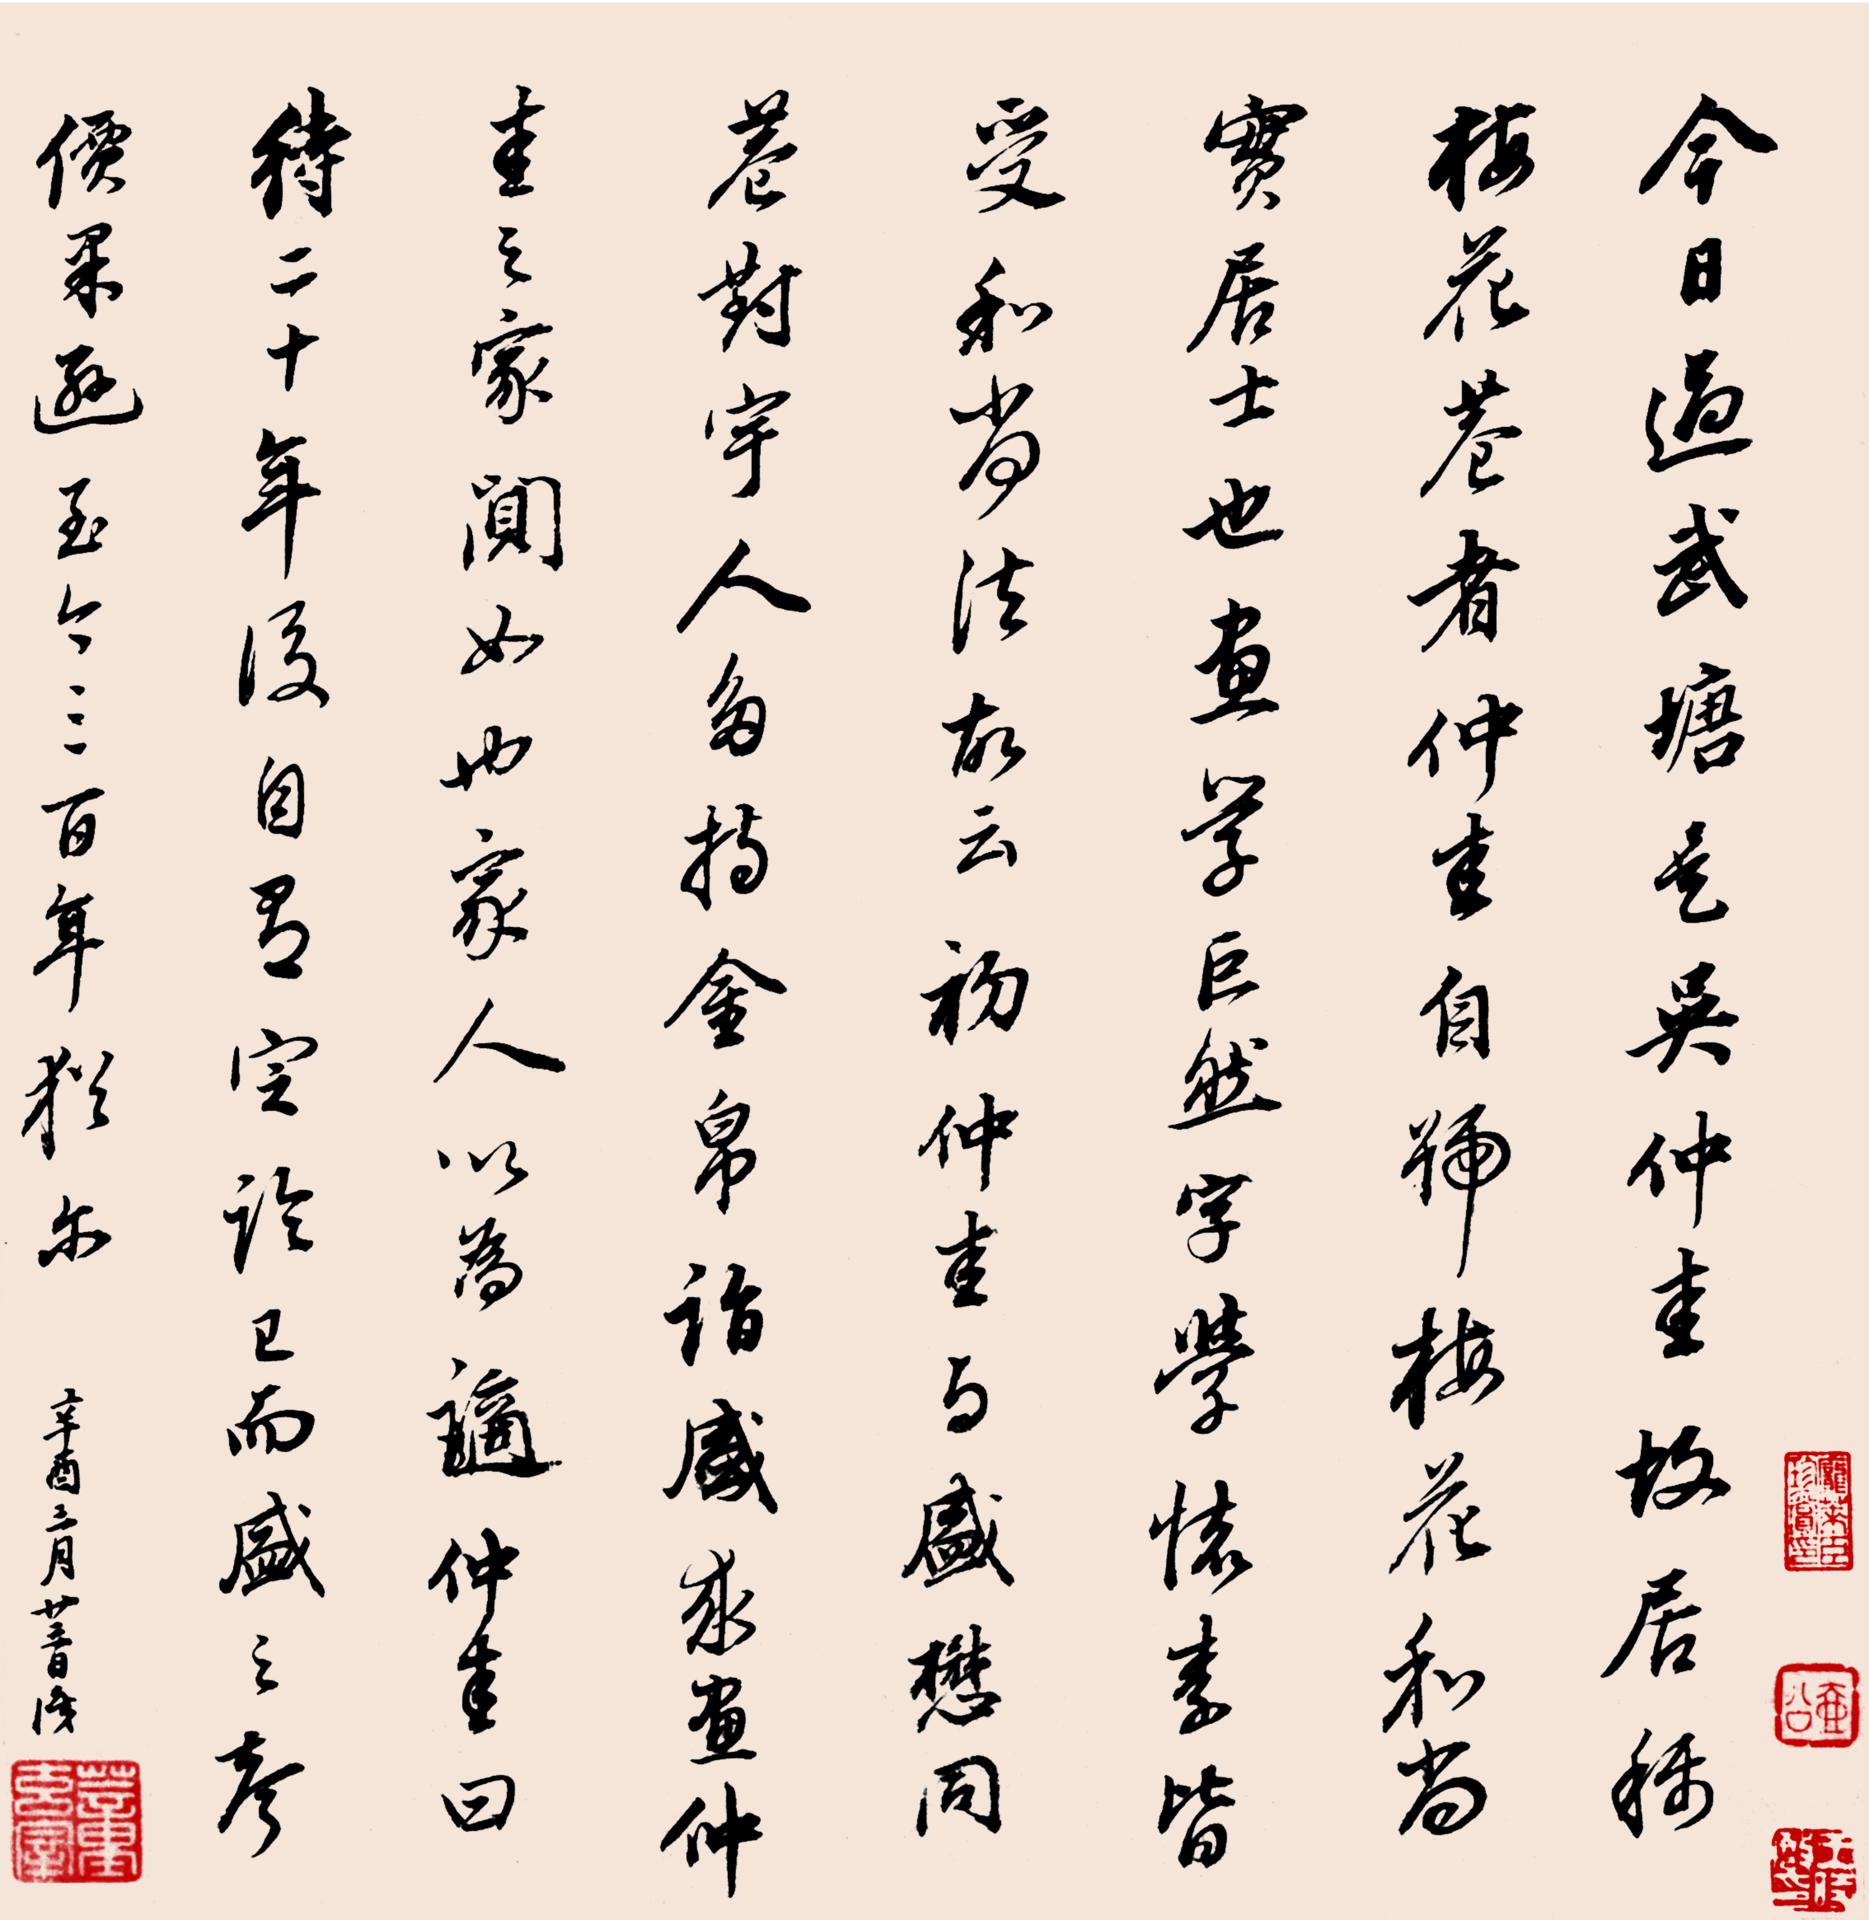 今日過武塘是吳仲圭故居稱
梅花菴者仲圭自號梅花和尚
實居士也畫學巨然字學懷素皆
受和尚法故云初仲圭与盛懋同
巷對宇人多持金帛詣盛求畫仲
圭之家闃如也家人以為讁仲圭曰
待二十年後自有定論已而盛之声
價果遜至今三百年猶尔
辛酉三月廿三日識
龐萊臣珍賞印